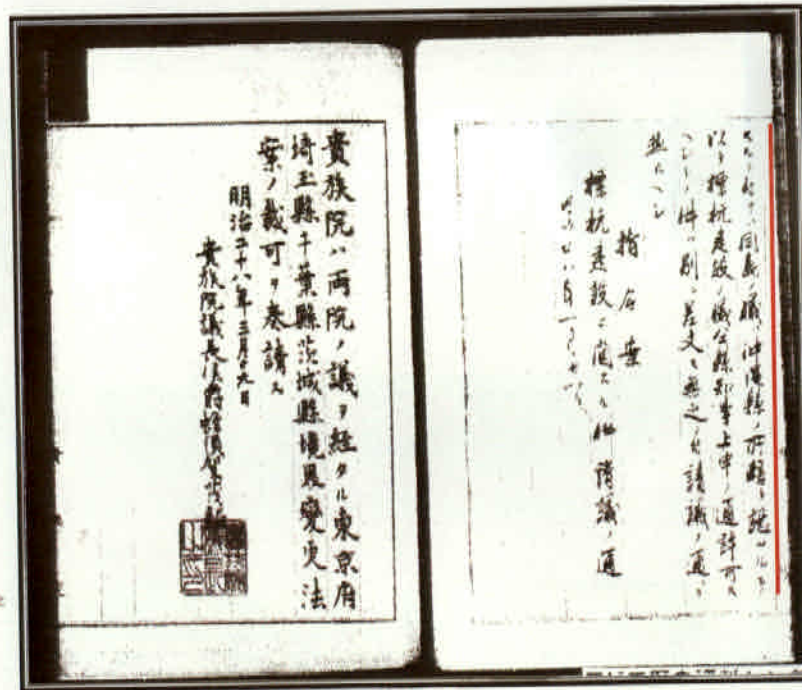 同島ノ儀ハ沖縄縣ノ所轄ト認ムルヲ
以テ標杭建設ノ儀仝縣知事上申ノ通許可ス
ヘシトノ件ハ別ニ差支モ無之ニ付請議ノ通ニテ
然ルヘシ
指令案
標杭建設ニ関スル件請議ノ通
明治廿八年一月廿一日
貴族院ハ両院ノ議ヲ経タル東京府
埼玉縣千葉縣茨城縣境界變更法
案ノ裁可ヲ奏請ス
明治二十八年三月十九日
貴族院議長侯爵蜂須賀茂韶